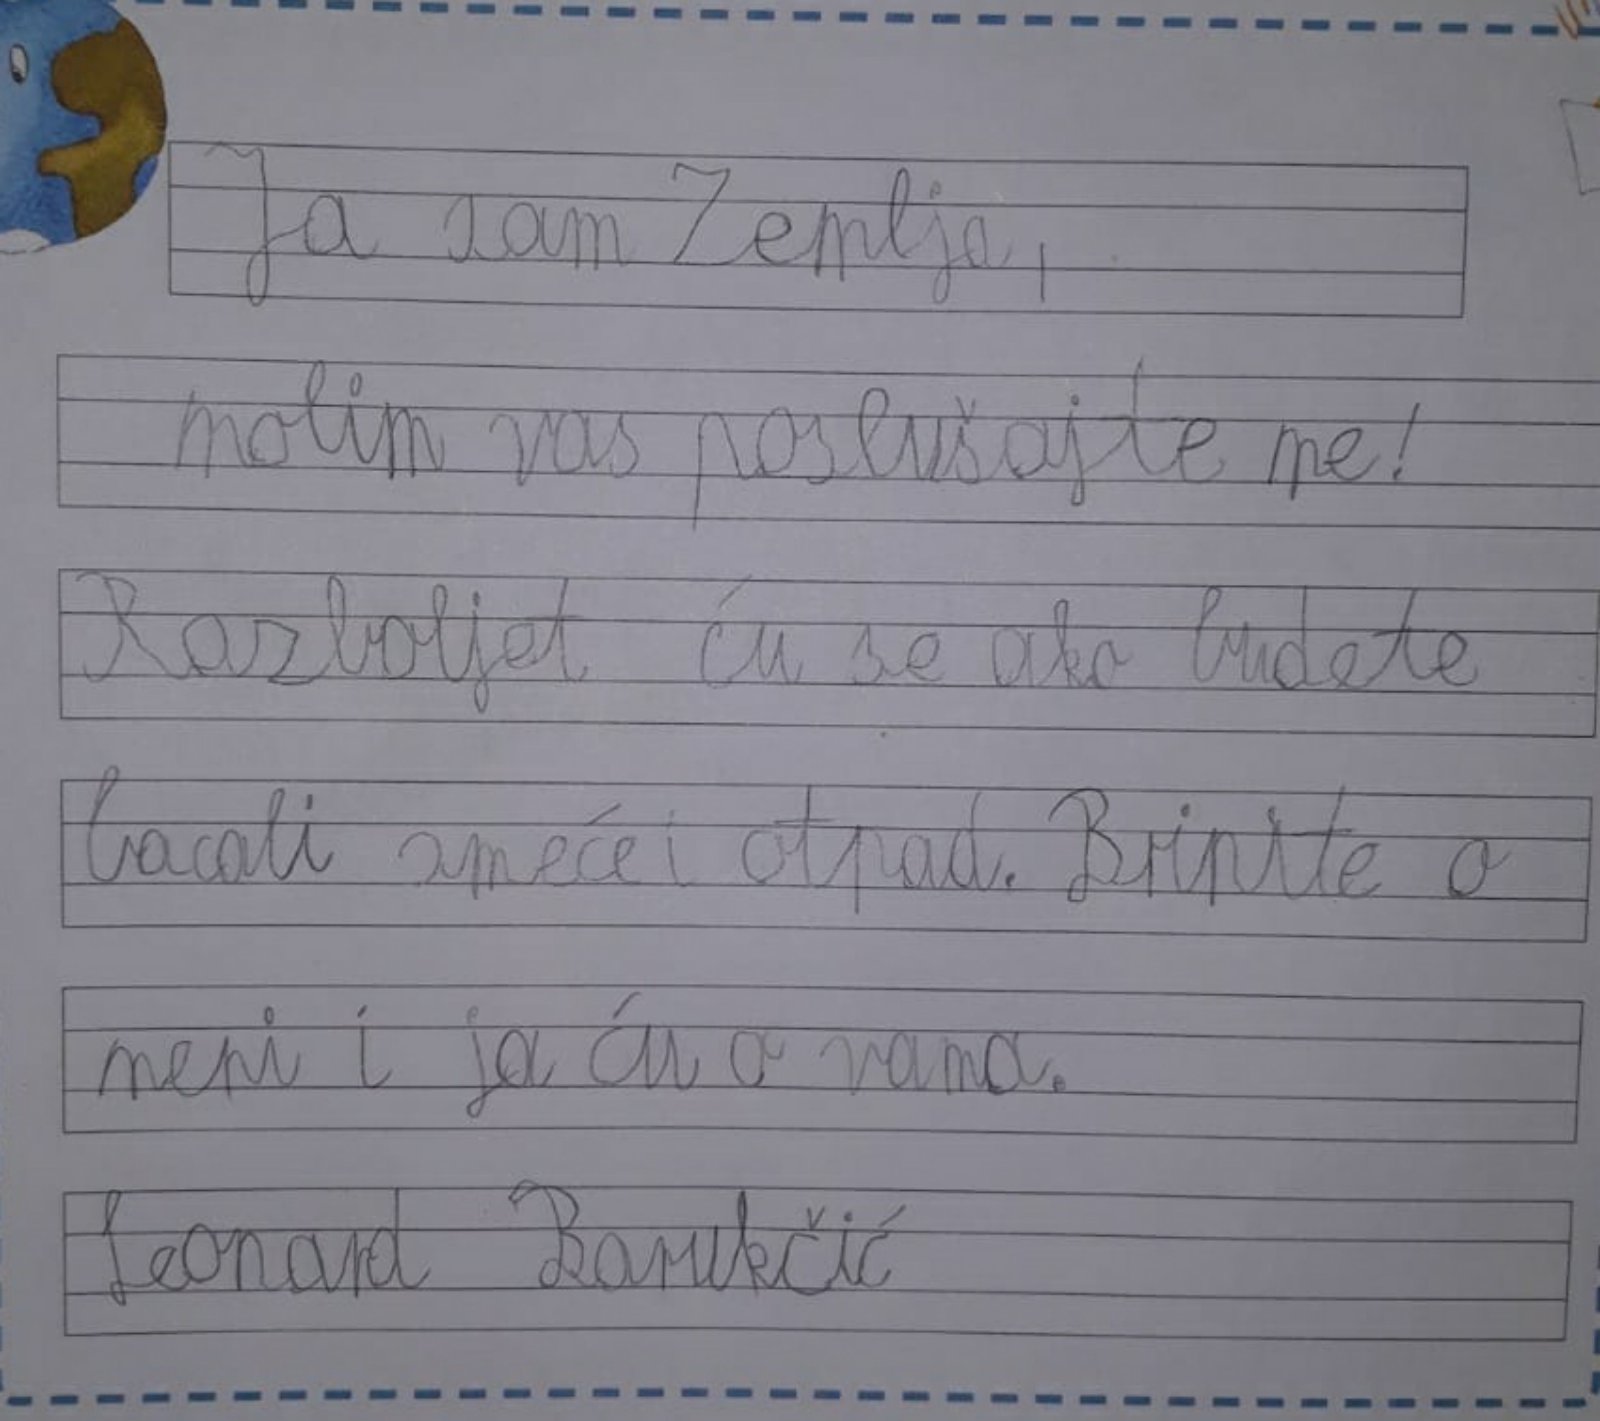 Ja sam Zemlja,
molim vas poslušajte me!
Razboljet ću se ako budete
bacali smeće i otpad. Brinite o
meni i ja ću o vama.
Leonard Barukčić